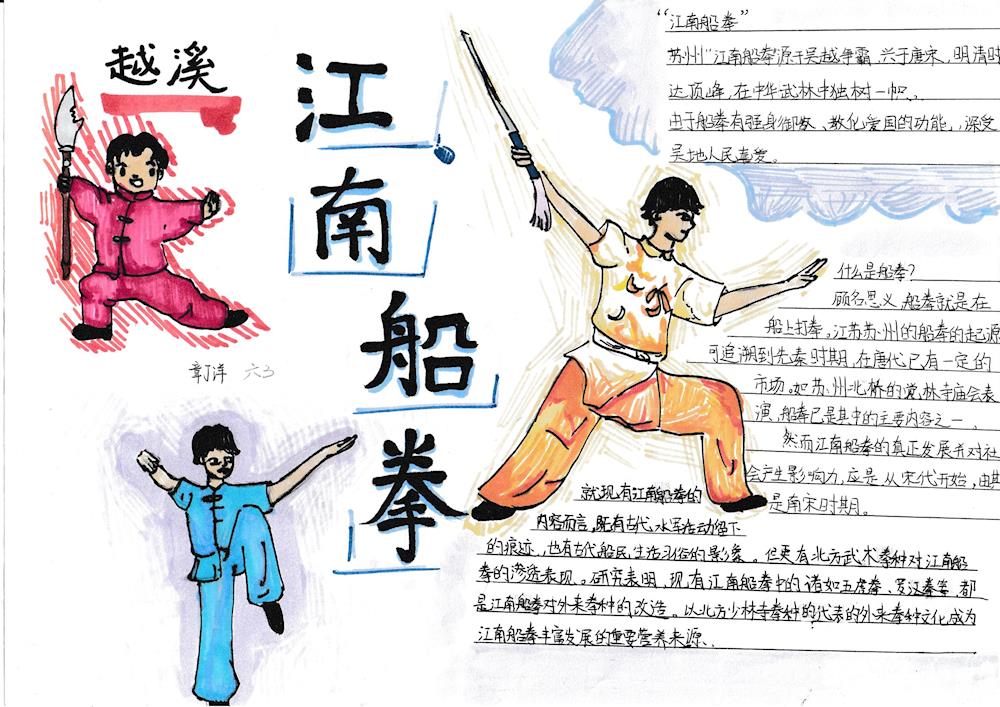 越溪
江南船拳
章丁洋 六3
“江南船拳”
苏州“江南船拳源于吴越争霸,兴于唐宋,明清时
达顶峰,在中华武林中独树一帜、
由于船拳有强身御敌、教化爱国的功能,深受
吴地人民喜爱。
什么是船拳?
顾名思义,船拳就是在
船上打拳。江苏苏州的船拳的起源
可追溯到先秦时期,在唐代已有一定的
市场。如苏州北桥的觉林寺庙会表
演,船拳已是其中的主要内容之一、
然而江南船拳的真正发展并对社
会产生影响力,应是从宋代开始,由其
是南宋时期。
就现有江南船拳的
内容而言,既有古代水军活动留下
的痕迹,也有古代船民生活习俗的影象。但更有北方武术拳种对江南船
拳的渗透表现。研究表明,现有江南船拳中的诸如五虎拳、罗汉拳等都
是江南船拳对外来拳种的改造。以北方少林寺拳种的代表的外来拳种文化成为
江南船拳丰富发展的重要营养来源、